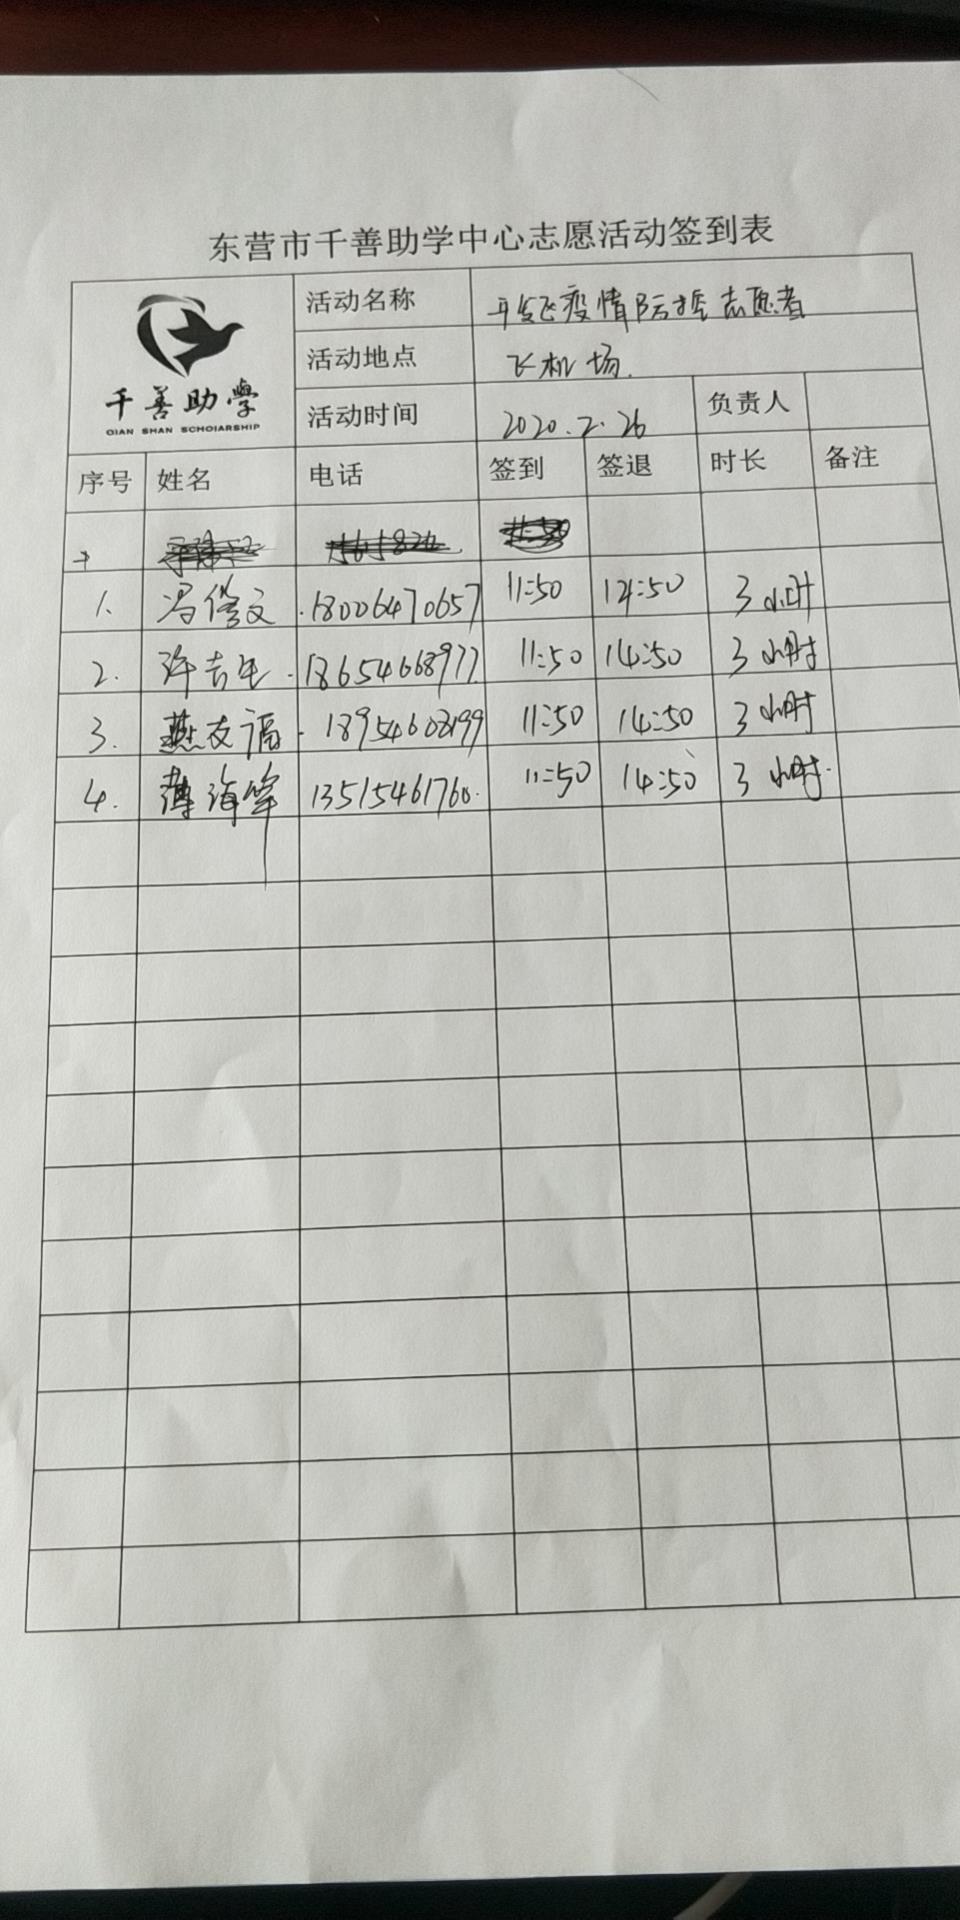 东营市千善助学中心志愿活动签到表
千善助學
QIAN SHAN SCHOIARSHIP
活动名称 疫情防控志愿者
活动地点 飞机场.
活动时间 2020.2.26 负责人
序号 姓名 电话 签到 签退 时长 备注
1. 冯俊文 18006470657 11:50 14:50 3小时
2. 许吉生 18654668977 11:50 14:50 3小时
3. 燕友福 18954608199 11:50 14:50 3小时
4. 薄海峰 13515461760 11:50 14:50 3小时